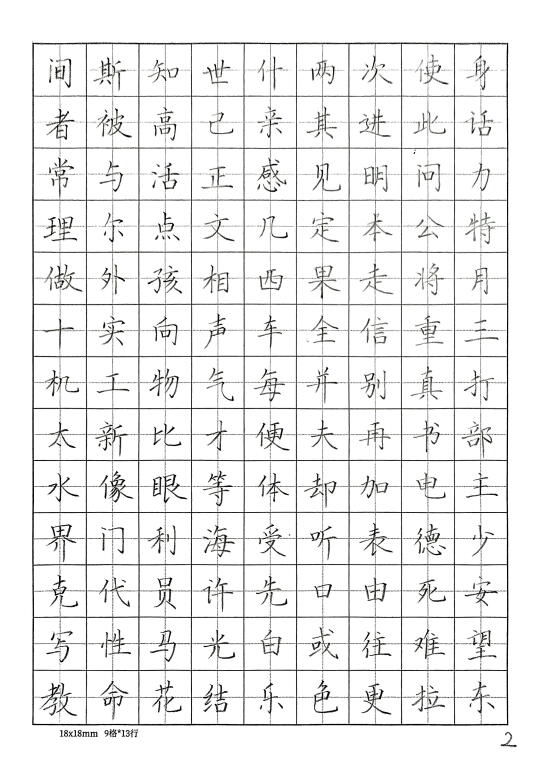 间斯知世什两次使身
者被高已亲其进此话
常与活正感见明问力
理尔点文几定本公特
做外孩相西果走将月
十实向声车全信重三
机工物气每并别真打
太新比才便夫再书部
水像眼等体却加电主
界门利海受听表德少
克代员许先口由死安
写性马光白或往难望
教命花结乐色更拉东
18x18mm 9格*13行
2